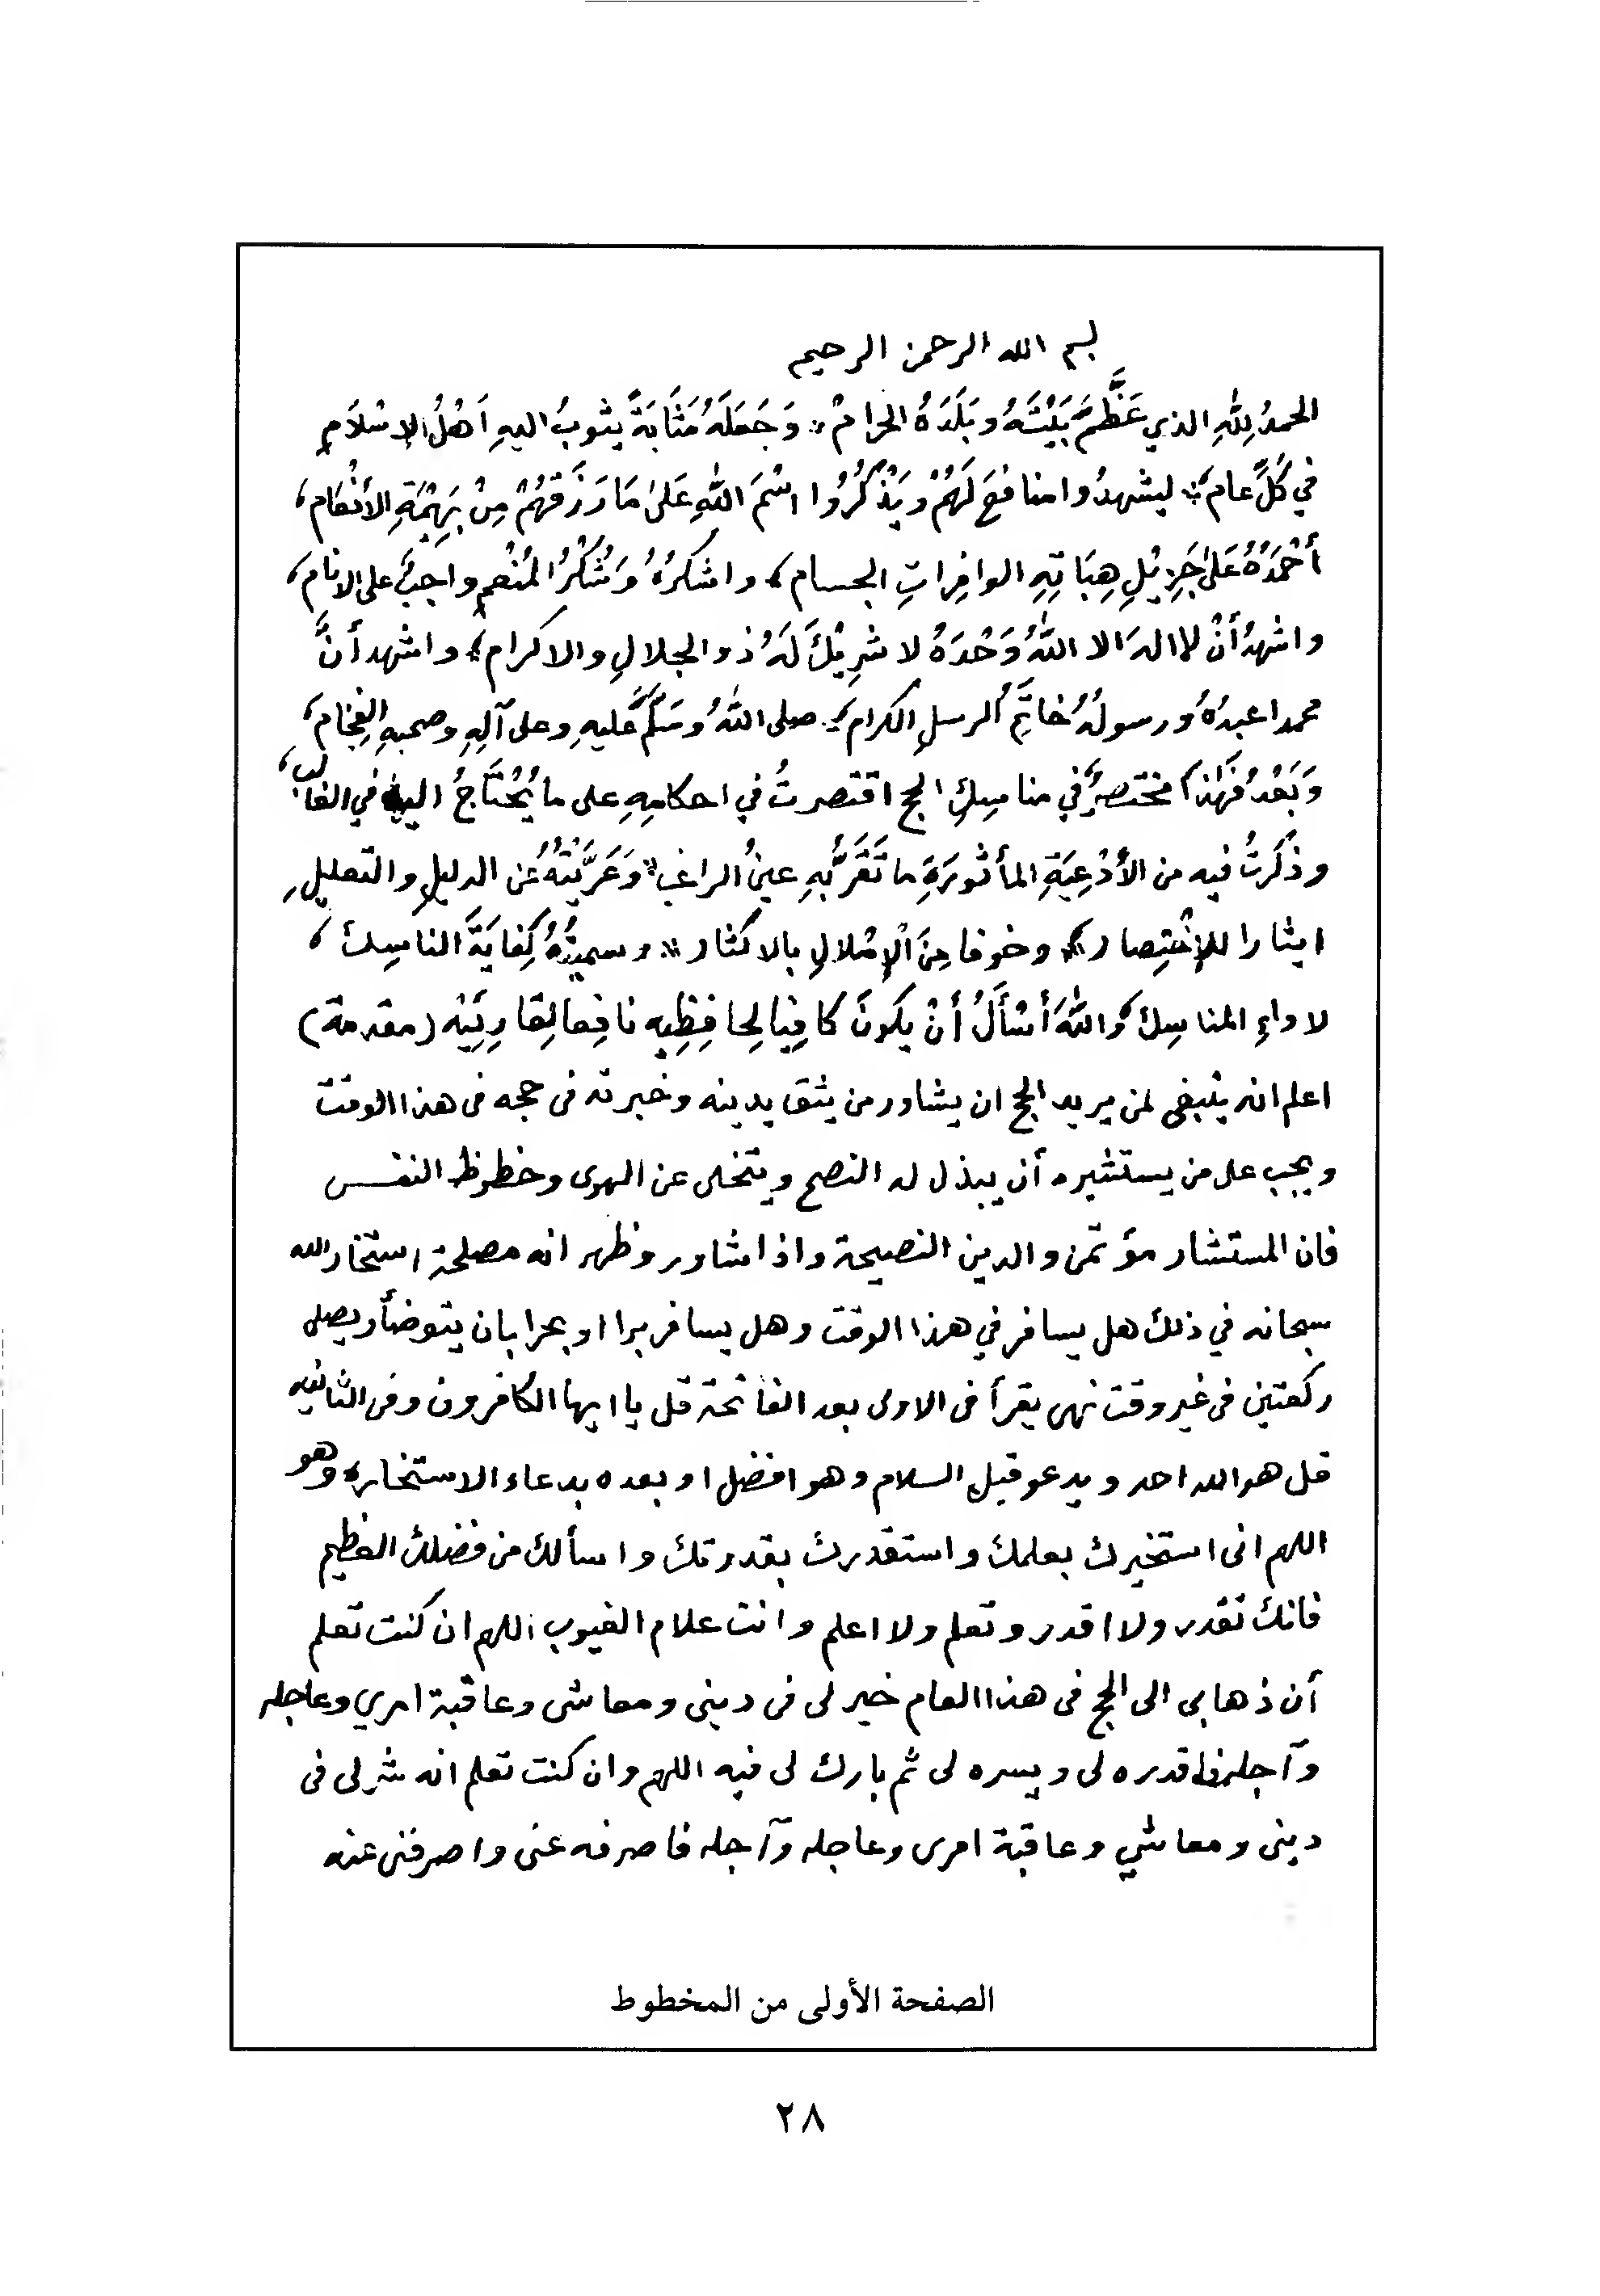 بسم الله الرحمن الرحيم
الحمدُ لِلّٰهِ الذي عَظَّمَ بَيْتَهُ وبَلَدَهُ الحرامْ ؛ وَجَعَلَهُ مَثَابَةً يثوبُ اليهِ اَهْلُ الاِسْلَامِ
في كُلِّ عام ؛ ليشهدُوا منافعَ لَهُمْ ويَذْكُرُوا اسْمَ اللّٰهِ عَلىٰ مَا رَزَقَهُمْ مِنْ بَهِيْمَةِ الأَنْعَام ،
أَحْمَدُهُ عَلىٰ جَزِيْلِ هِبَاتِهِ الوافِراتِ الجسام ، واشكرُهُ وَشُكْرُ المُنْعِمِ واجبٌ على الانام ،
واشهدُ أَنْ لا اله الا اللّٰهُ وَحْدَهُ لا شَرِيْكَ لَهُ ذو الجلالِ والاكرام ، واشهد أنَّ
محمدا عبدُهُ ورسولُهُ خاتِمُ الرسلِ الكرام ؛ صلى اللّٰهُ وسَلَّمَ عليهِ وعلى آلِهِ وصحبهِ الفِخَام ،
وَبَعْدُ فَهٰذا مختصرٌ في مناسِكِ الحج اقتصرتُ في احكامِهِ على ما يُحْتَاجُ اليه في الغالب ،
وذَكَرتُ فيه من الأَدْعِيَةِ المأثورَةِ ما تَقَرُّ بِهِ عينُ الراغب ؛ وَعَرَّيْتُهُ عَن الدليلِ والتعليلِ
ايثارا للاِخْتِصار ، وخوفا مِنَ الْاِمْلالِ بالاكثار ؛ وسميتُهُ كِفايَةَ الناسِك ،
لاداءِ المناسِك ، واللّٰهَ أَسْأَلُ أَنْ يكونَ كافِيا لِحافِظِيهِ نافِعا لِقارِئِيْه (مقدمة)
اعلم انه ينبغي لمن يريد الحج ان يشاور من يثق بدينه وخبرته في حجه في هذا الوقت
ويجب على من يستشيره أن يبذل له النصح ويتخلى عن الهوى وحظوظ النفس
فان المستشار مؤتمن والدين النصيحة واذا شاور وظهر انه مصلحة استخار الله
سبحانه في ذلك هل يسافر في هذا الوقت وهل يسافر برا او بحرا بان يتوضأ ويصلى
ركعتين في غير وقت نهي يقرأ في الاولى بعد الفاتحة قل يا ايها الكافرون وفي الثانيه
قل هو الله احد ويدعو قبل السلام وهو افضل او بعده بدعاء الاستخاره وهو
اللهم اني استخيرك بعلمك واستقدرك بقدرتك واسألك من فضلك العظيم
فانك تقدر ولا اقدر وتعلم ولا اعلم وانت علام الغيوب اللهم ان كنت تعلم
أن ذهابى الى الحج في هذا العام خير لي في ديني ومعاشي وعاقبة امري وعاجله
وآجله فاقدره لى ويسره لى ثم بارك لى فيه اللهم وان كنت تعلم انه شر لى فى
دينى ومعاشي وعاقبة امرى وعاجله وآجله فاصرفه عنى واصرفنى عنه
الصفحة الأولى من المخطوط
٢٨